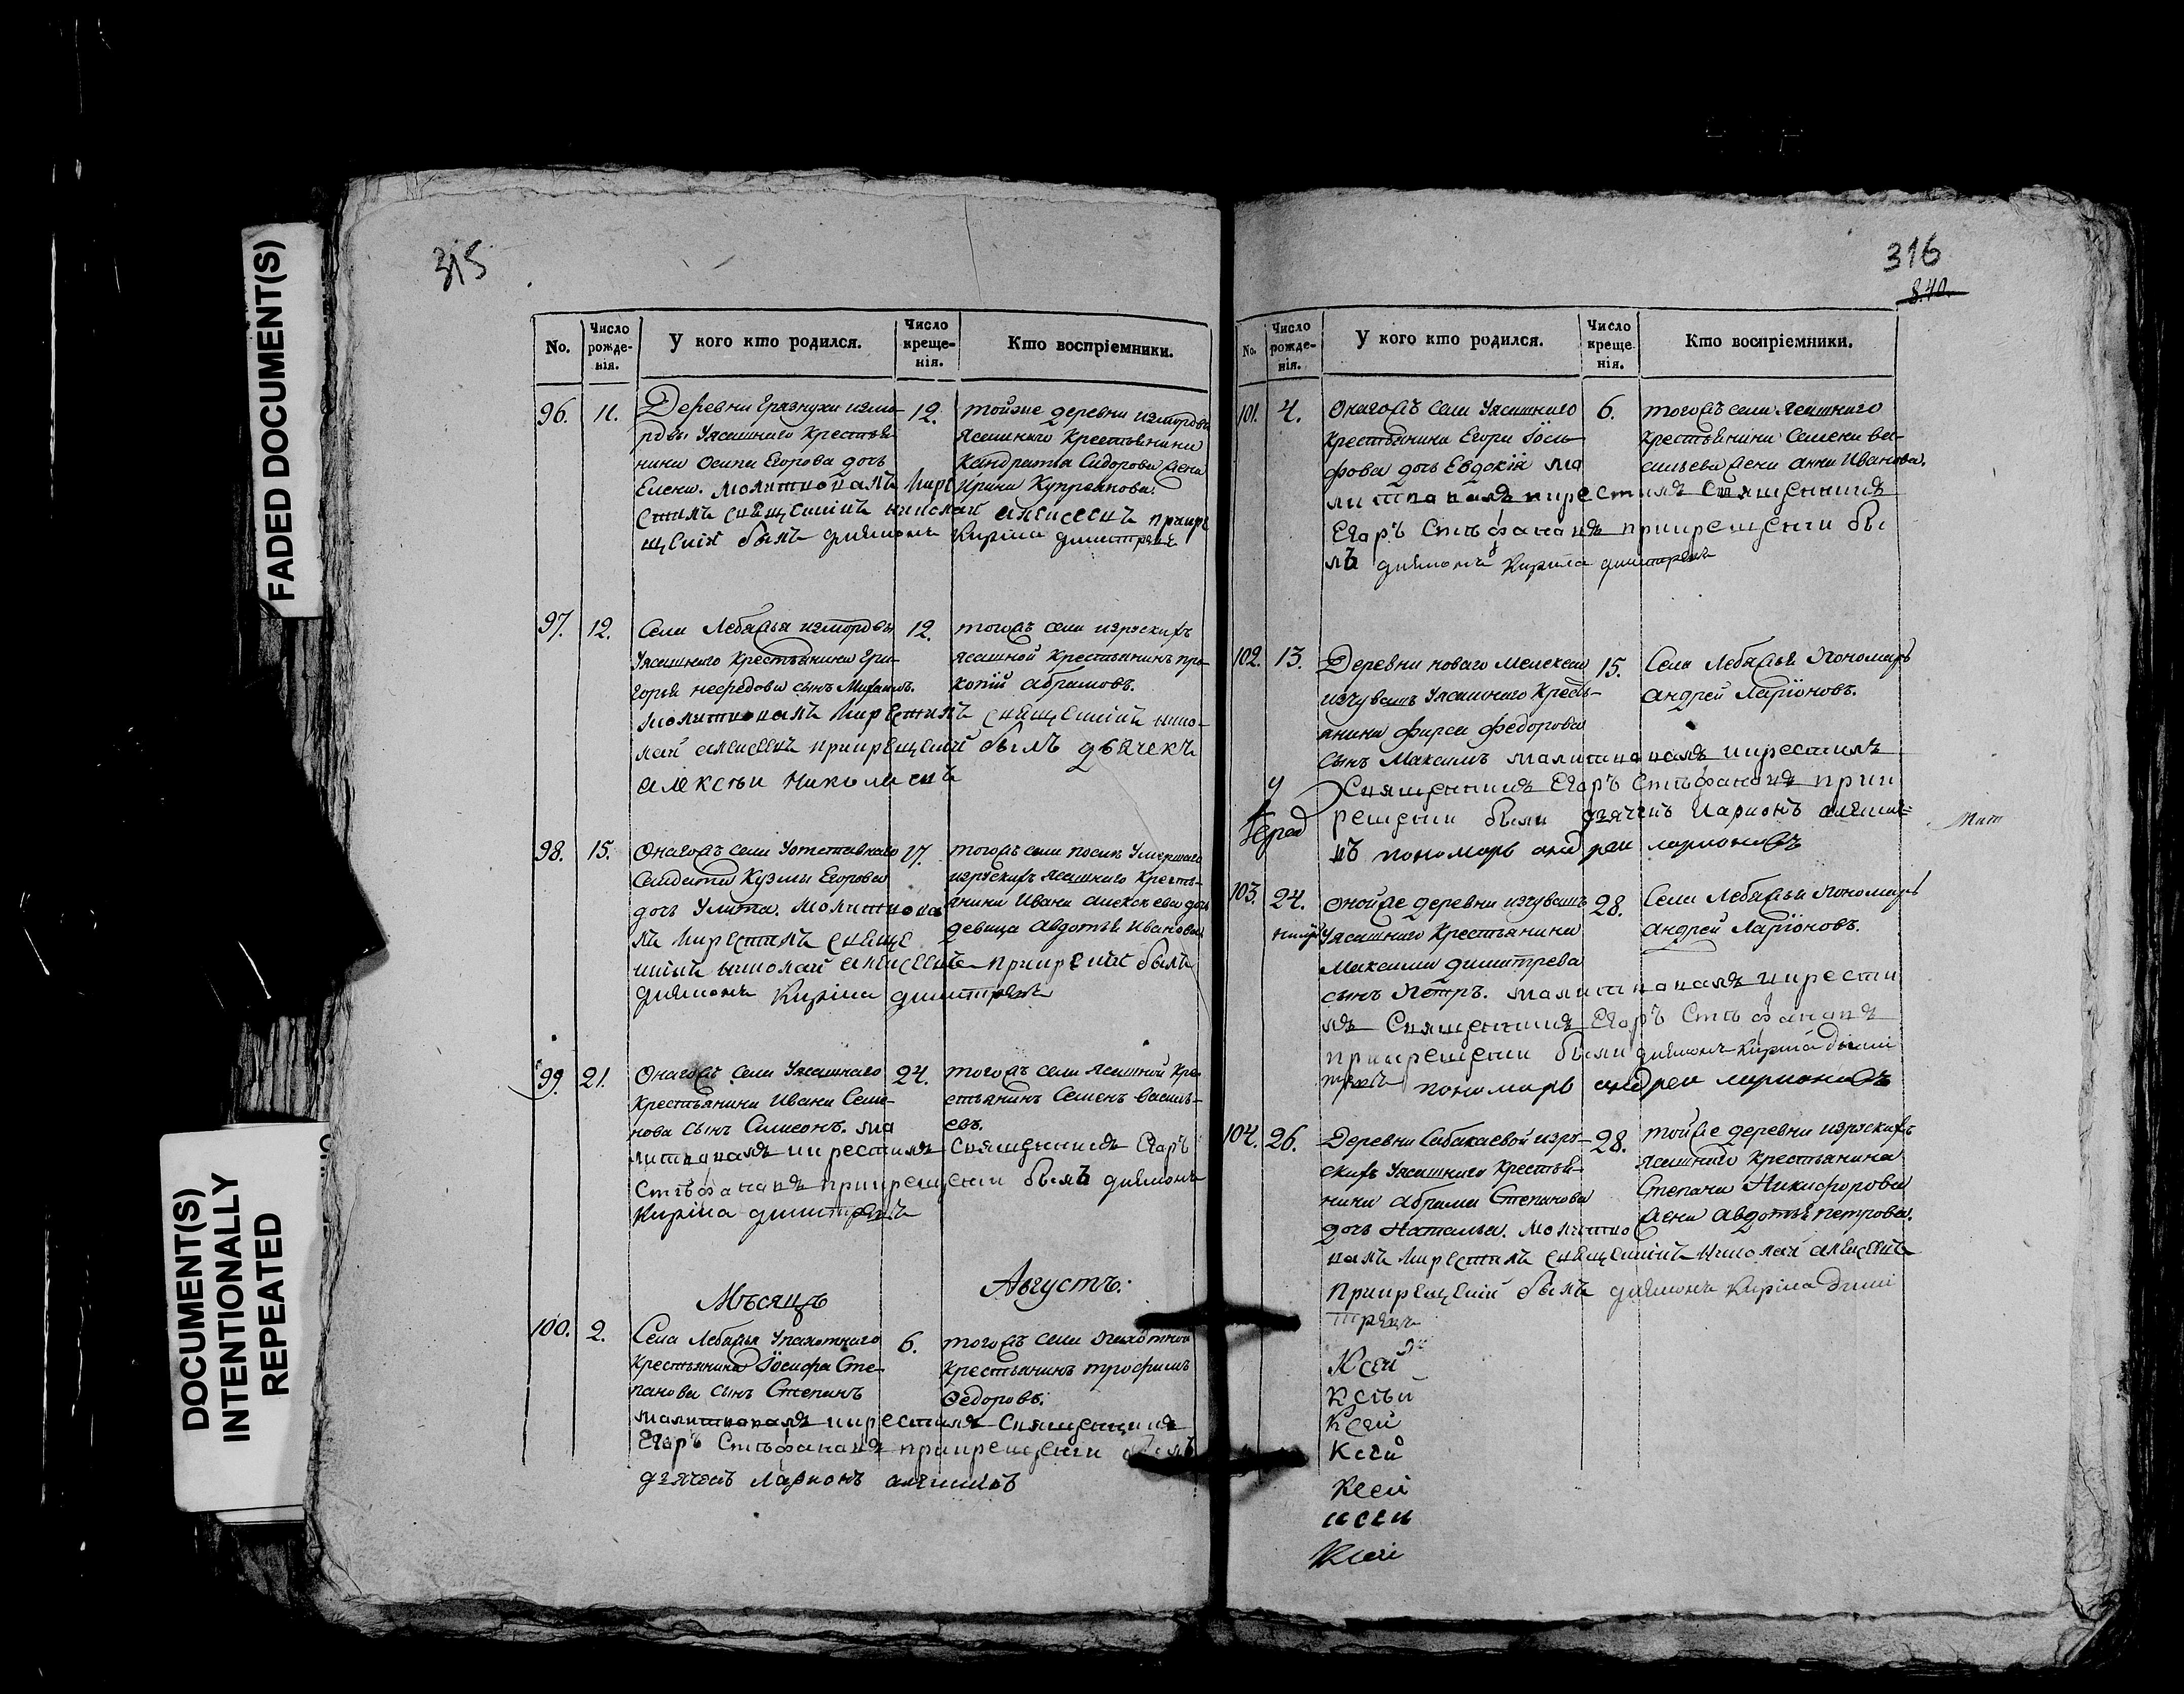 FADED DOCUMENT(S)
DOCUMENT(S)
INTENTIONALLY
REPEATED
315
No.
Число рожде-нія.
У кого кто родился.
Число креще-нія.
Кто воспріемники.
96.
11.
Деревни Грязнухи измо-
рдвы Уясашнаго Крестья
нина Осипа Егорова дочь
Елена. Молитвовалъ Икре
стилъ священникъ николай алексеевъ прикре
щении былъ диаконъ Кирила димитревъ
12.
тойже деревни измордвы
Ясашнаго Крестьянина
Кандратья Сидорова жена
Ирина Купреянова.
97.
12.
Села Лебяжья измордвы
Уясашнаго Крестьянина Гри-
горья нефедова сынъ Михаилъ.
молитвовалъ Икрестилъ священникъ нико-
лай алексеевъ прикрещении былъ дьячекъ
алексеи николаевъ
12.
тогожъ села изрускихъ
ясашной Крестьянинъ про-
копій абрамовъ.
98.
15.
Онагожъ села Уотставнаго
Салдата Кузмы Егорова
дочь Улита. Молитвова
лъ Икрестилъ свяще
нникъ николай алексеевъ прикрещении былъ
диаконъ Кирила димитревъ
17.
тогожъ села после Умершаго
изрускихъ ясашнаго Кресть-
янина Ивана алексеева дочь
девица авдотья Иванова
99.
21.
Онагожъ села Уясашнаго
Крестьянина Ивана Семе-
нова сынъ Симеонъ. ма
литвовалъ икрестилъ Священникъ Егаръ
Стефановъ прикрещении былъ диаконъ
Кирила димитревъ
24.
тогожъ села ясашной Кре-
стьянинъ Семенъ василь-
евъ.
Мѣсяцъ
Августъ:
100.
2.
Села Лебяжья Упахотнаго
Крестьянина Іосифа Сте-
панова сынъ Степанъ
малитвовалъ икрестилъ Священникъ
Егаръ Стефановъ прикрещении былъ
дьячекъ Ларионъ
6.
тогожъ села Пахотной
Крестьянинъ трофимъ
Ѳедоровъ.
316
840.
No.
Число рожде-нія.
У кого кто родился.
Число креще-нія.
Кто воспріемники.
101.
4.
Онагожъ села Уясашнаго
Крестьянина Егора Іоси-
фова дочь Евдокія ма
литвовалъ икрестилъ Священникъ
Егаръ Стефановъ прикрещении бы
лъ диаконъ Кирила димитревъ
6.
тогожъ села ясашнаго
Крестьянина Семена ва-
сильева жена анна Иванова.
102.
13.
Деревни новаго Мелекеса
изчувашъ Уясашнаго Кресть-
янина фирса федорова
сынъ Максимъ малитвовалъ икрестилъ
Священникъ Егаръ Стефановъ прик
рещении были дьячекъ Иларионъ
пономарь андреи ларионовъ
15.
Села Лебяжья Пономарь
андрей Ларіоновъ.
103.
24.
онойже деревни изчувашъ
Уясашнаго Крестьянина
Максима димитрева
сынъ Петръ. малитвовалъ икрести
лъ Священникъ Егаръ Стефановъ
прикрещении были диаконъ Кирила дими
тревъ пономарь андреи ларионовъ
28.
Села Лебяжья Пономарь
андрей Ларіоновъ.
104.
26.
Деревни Сабакаевой изру-
скихъ Уясашнаго Крестья-
нина абрама Степанова
дочь Наталья. Молитво
валъ Икрестилъ священникъ николай алексеевъ
прикрещении былъ диаконъ Кирила дими
тревъ
28.
тойже деревни изрускихъ
Ясашнаго Крестьянина
Степана Никифорова
жена авдотья петрова.
Ксей
Ксѣй
Ксей
Ксей
Ксей
ксеи
Ксеи